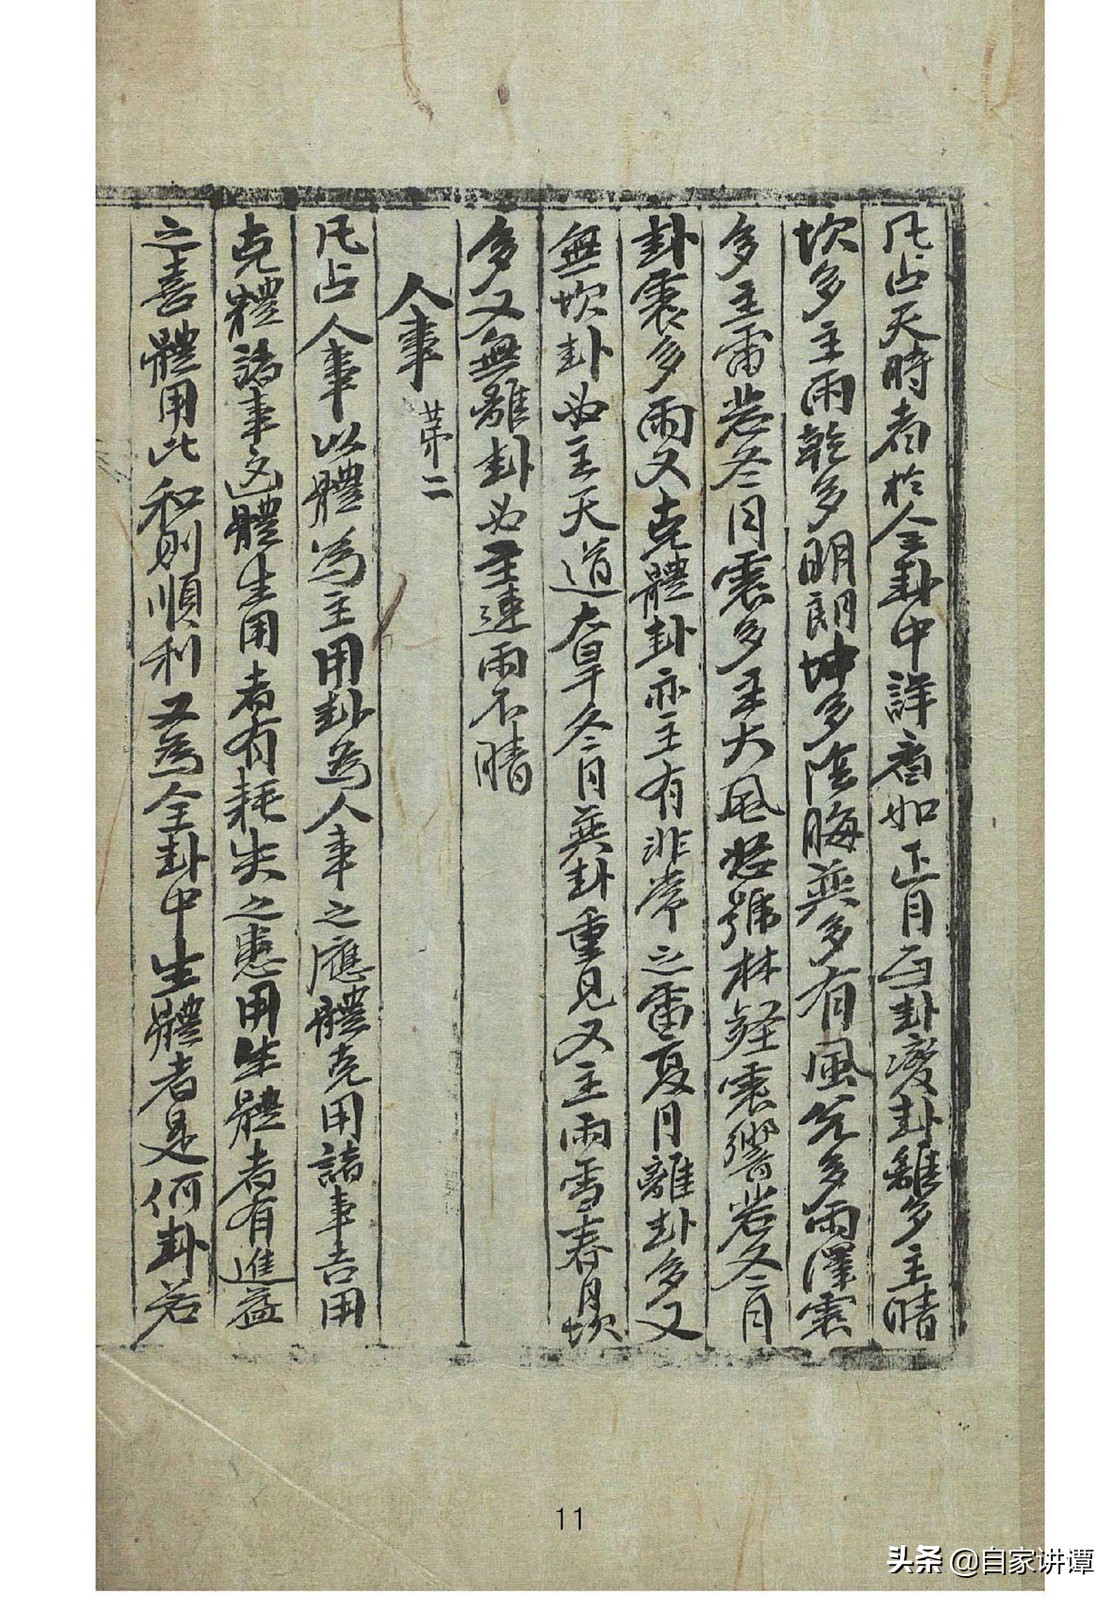 凡占天時者於全卦中詳看如正月互卦變卦離多主晴
坎多主雨乾多明朗坤多陰晦巽多有風兌多雨澤震
多主雷若冬月震多主大風怒號林經震響若冬月
卦震多雨又克體卦亦主有非常之雷夏月離卦多又
無坎卦必主天道大旱冬月巽卦重見又主雨雪春月坎
多又無離卦必主連雨不晴
人事 苐二
凡占人事以體為主用卦為人事之應體克用諸事吉用
克體諸事凶體生用者有耗失之患用生體者有進益
之喜體用比和則順利又為全卦中生體者是何卦若
11
头条 @自家讲谭